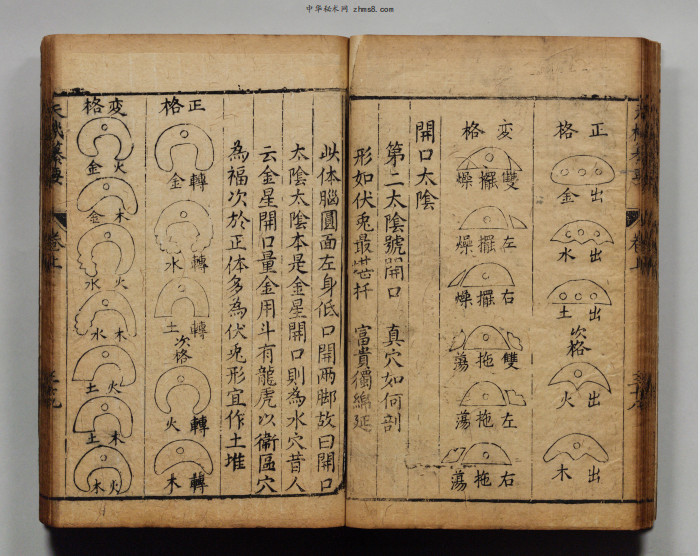 中华秘术网 zhms8.com
正格
出金
出水
出土
次格
出火
出木
変格
雙擺燥
左擺燥
右擺燥
雙拖蕩
左拖蕩
右拖蕩
開口太陰
第二太陰號開口 真穴如何剖
形如伏兎最 富貴獨綿延
此体腦圓面左身低口開兩脚故曰開口
太陰太陰本是金星開口則為水穴昔人
云金星開口量金用斗有龍虎以衛區穴
為福次於正体多為伏兎形宜作土堆
正格
轉金
轉水
轉土
次格
轉火
轉木
変格
火金
木金
火水
木水
火土
木土
火木
卷上